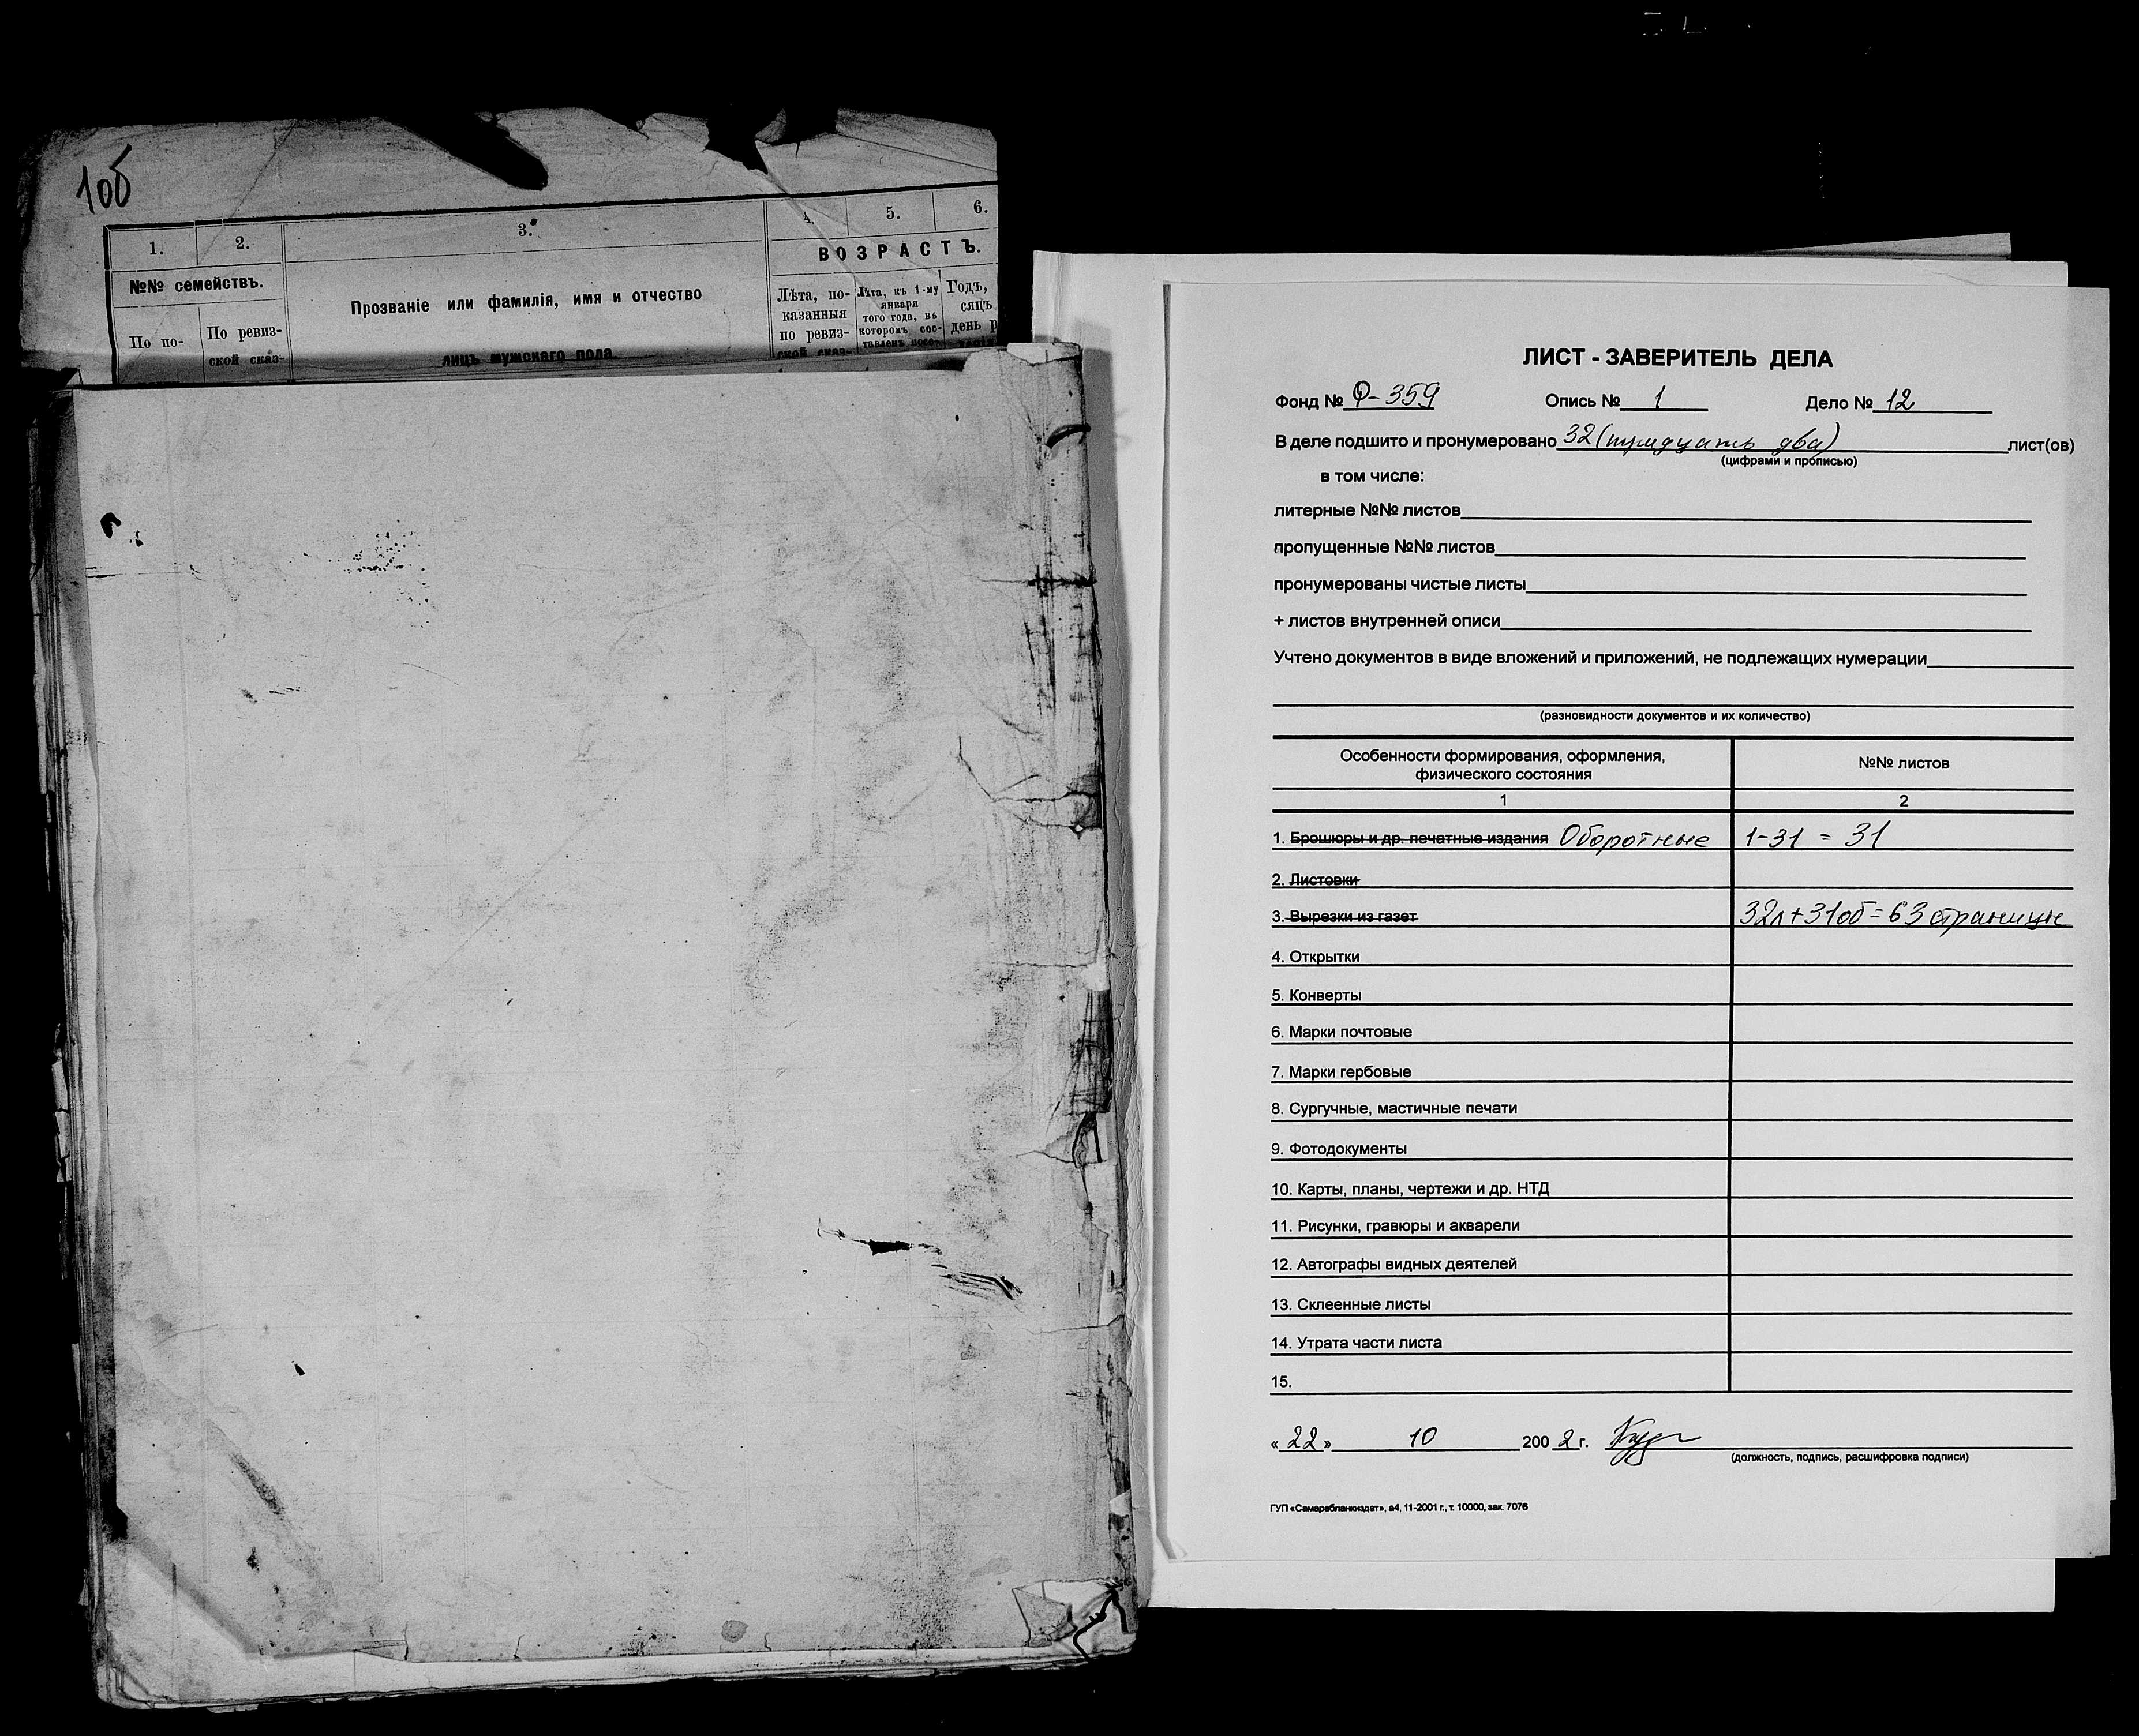 1об
1. 2. 3. 4. 5. 6.
ВОЗРАСТЪ.
№№ семействъ.
Прозваніе или фамилія, имя и отчество
лицъ мужскаго пола.
По по-
По ревиз-
ской сказ-
Лѣта, по-
казанныя
по ревиз-
ской сказ-
Лѣта, къ 1-му
января
того года, въ
которомъ сос-
тавленъ посе-
Годъ,
сяцъ
день р
ЛИСТ - ЗАВЕРИТЕЛЬ ДЕЛА
Фонд № Ф-359 Опись № 1 Дело № 12
В деле подшито и пронумеровано 32 (тридцать два) лист(ов)
(цифрами и прописью)
в том числе:
литерные №№ листов
пропущенные №№ листов
пронумерованы чистые листы
+ листов внутренней описи
Учтено документов в виде вложений и приложений, не подлежащих нумерации
(разновидности документов и их количество)
Особенности формирования, оформления,
физического состояния
№№ листов
1 2
1. Брошюры и др. печатные издания Оборотные 1-31 = 31
2. Листовки
3. Вырезки из газет 32л+31об=63 страницы
4. Открытки
5. Конверты
6. Марки почтовые
7. Марки гербовые
8. Сургучные, мастичные печати
9. Фотодокументы
10. Карты, планы, чертежи и др. НТД
11. Рисунки, гравюры и акварели
12. Автографы видных деятелей
13. Склеенные листы
14. Утрата части листа
15.
« 22 » 10 200 2 г.
(должность, подпись, расшифровка подписи)
ГУП «Самарабланкиздат», а4, 11-2001 г., т. 10000, зак. 7076